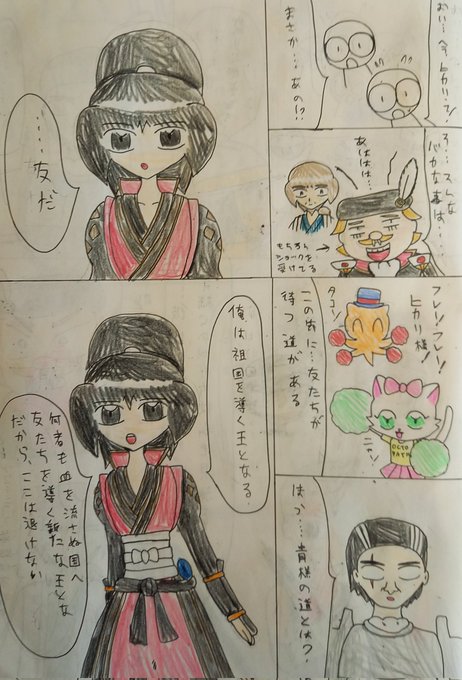 おい…今、ヒカリって!
まさか…あの!?
そ…そんな
バカな事は…
あははは…
もちろん
ショックを
受けてる
フレー!フレー!
ヒカリ様!
タコー!
ニャン
OCTO
PATH
この先に…友たちが
待つ道がある
はっ…貴様の道とは?
……友だ
俺は祖国を導く王となる。
何者も血を流さぬ国へ
友たちを導く新たな王とな
だから、ここは退けない